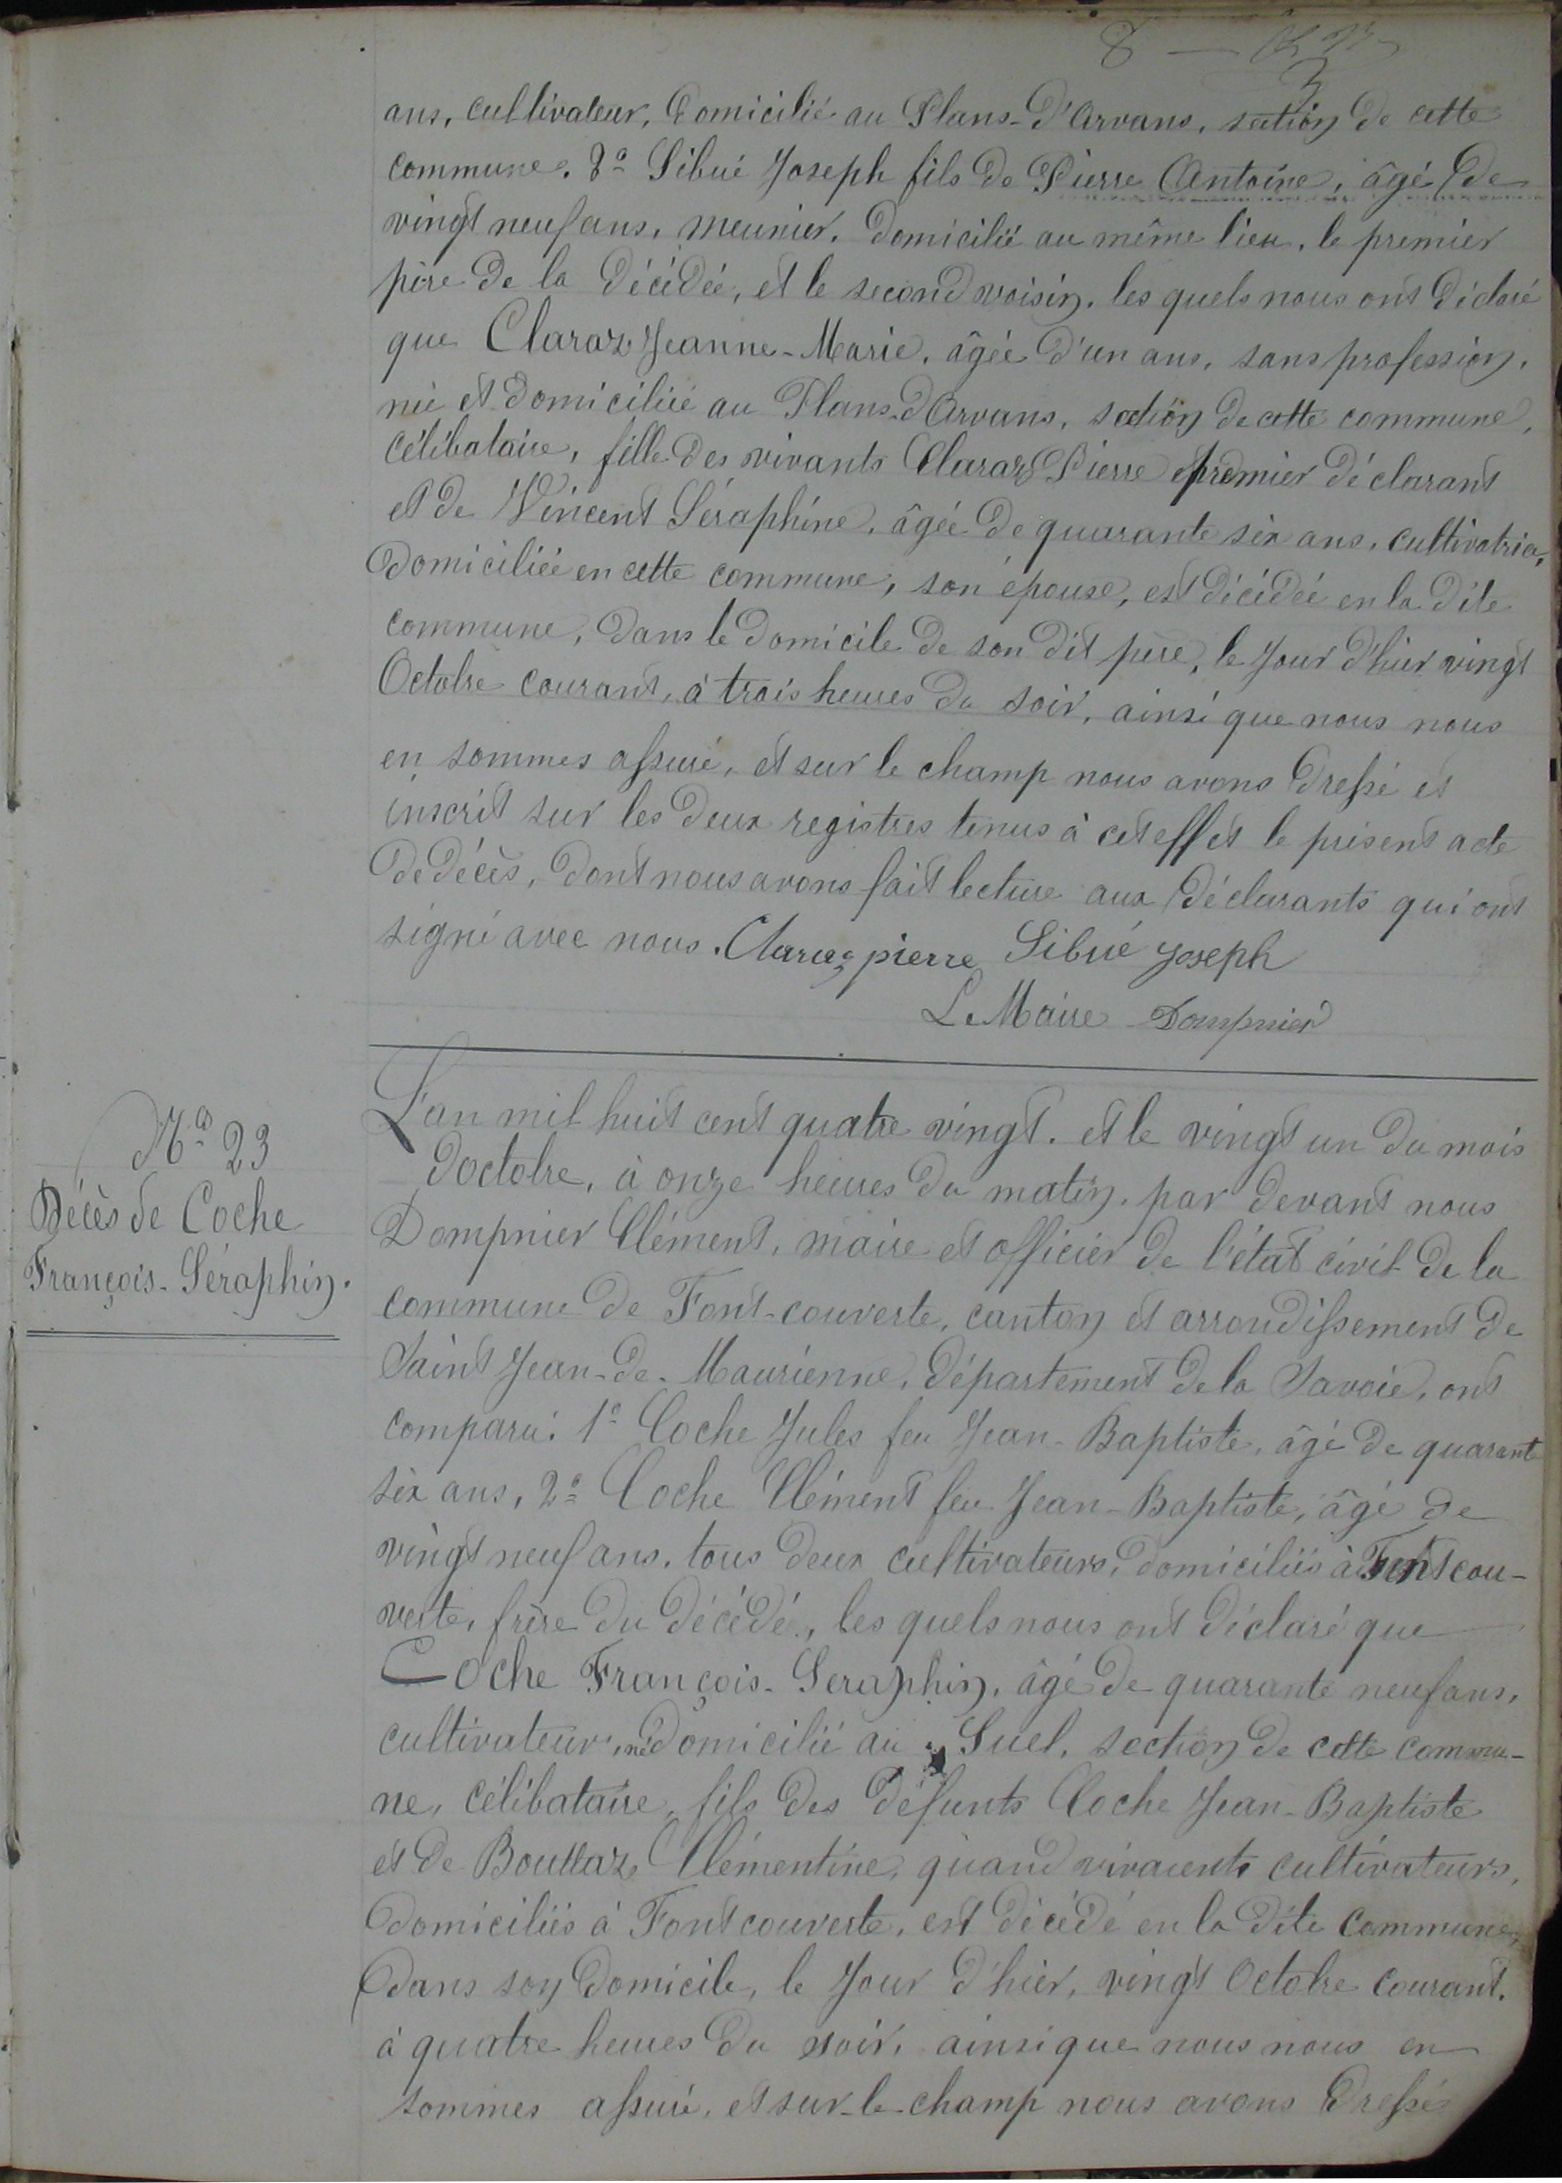 8
3
ans, cultivateur, domicilié au Plans-d'Arvans, section de cette
commune. 2º Sibué Joseph fils de Pierre Antoine, âgé de
vingt neuf ans, meunier, domicilié au même lieu, le premier
père de la décédée, et le second voisin, les quels nous ont déclaré
que Claraz Jeanne-Marie, âgée d'un ans, sans profession,
née et domiciliée au Plans-d'Arvans, section de cette commune,
célibataire, fille des vivants Claraz Pierre premier déclarant
et de Vincent Séraphine, âgée de quarante six ans, cultivatrice,
domiciliée en cette commune, son épouse, est décédée en la dite
commune, dans le domicile de son dit père, le jour d'hier vingt
Octobre courant, à trois heures du soir, ainsi que nous nous
en sommes assuré, et sur le champ nous avons dressé et
inscrit sur les deux registres tenus à cet effet le présent acte
de décès, dont nous avons fait lecture aux déclarants qui ont
signé avec nous. Claraz pierre Sibué Joseph
Le Maire Dompnier
Nº 23
Décès de Coche
François-Séraphin.
L'an mil huit cent quatre vingt. et le vingt un du mois
d'octobre, à onze heures du matin. par devant nous
Dompnier Clément, maire et officier de l'état civil de la
commune de Font-couverte, canton et arrondissement de
Saint Jean-de-Maurienne, département de la Savoie, ont
comparu: 1º Coche Jules feu Jean-Baptiste, âgé de quarante
six ans, 2º Coche Clément feu Jean-Baptiste, âgé de
vingt neuf ans, tous deux cultivateurs, domiciliés à Fontcou-
verte, frère du décédé, les quels nous ont déclaré que
Coche François-Seraphin, âgé de quarante neuf ans,
cultivateur, né domicilié au Suel, section de cette commu-
ne, célibataire, fils des défunts Coche Jean-Baptiste
et de Bouttaz Clémentine, quand vivaients cultivateurs,
domiciliés à Fontcouverte, est décédé en la dite commune,
dans son domicile, le jour d'hier, vingt Octobre courant.
à quatre heures du soir, ainsi que nous nous en
sommes assuré, et sur-le-champ nous avons dressé